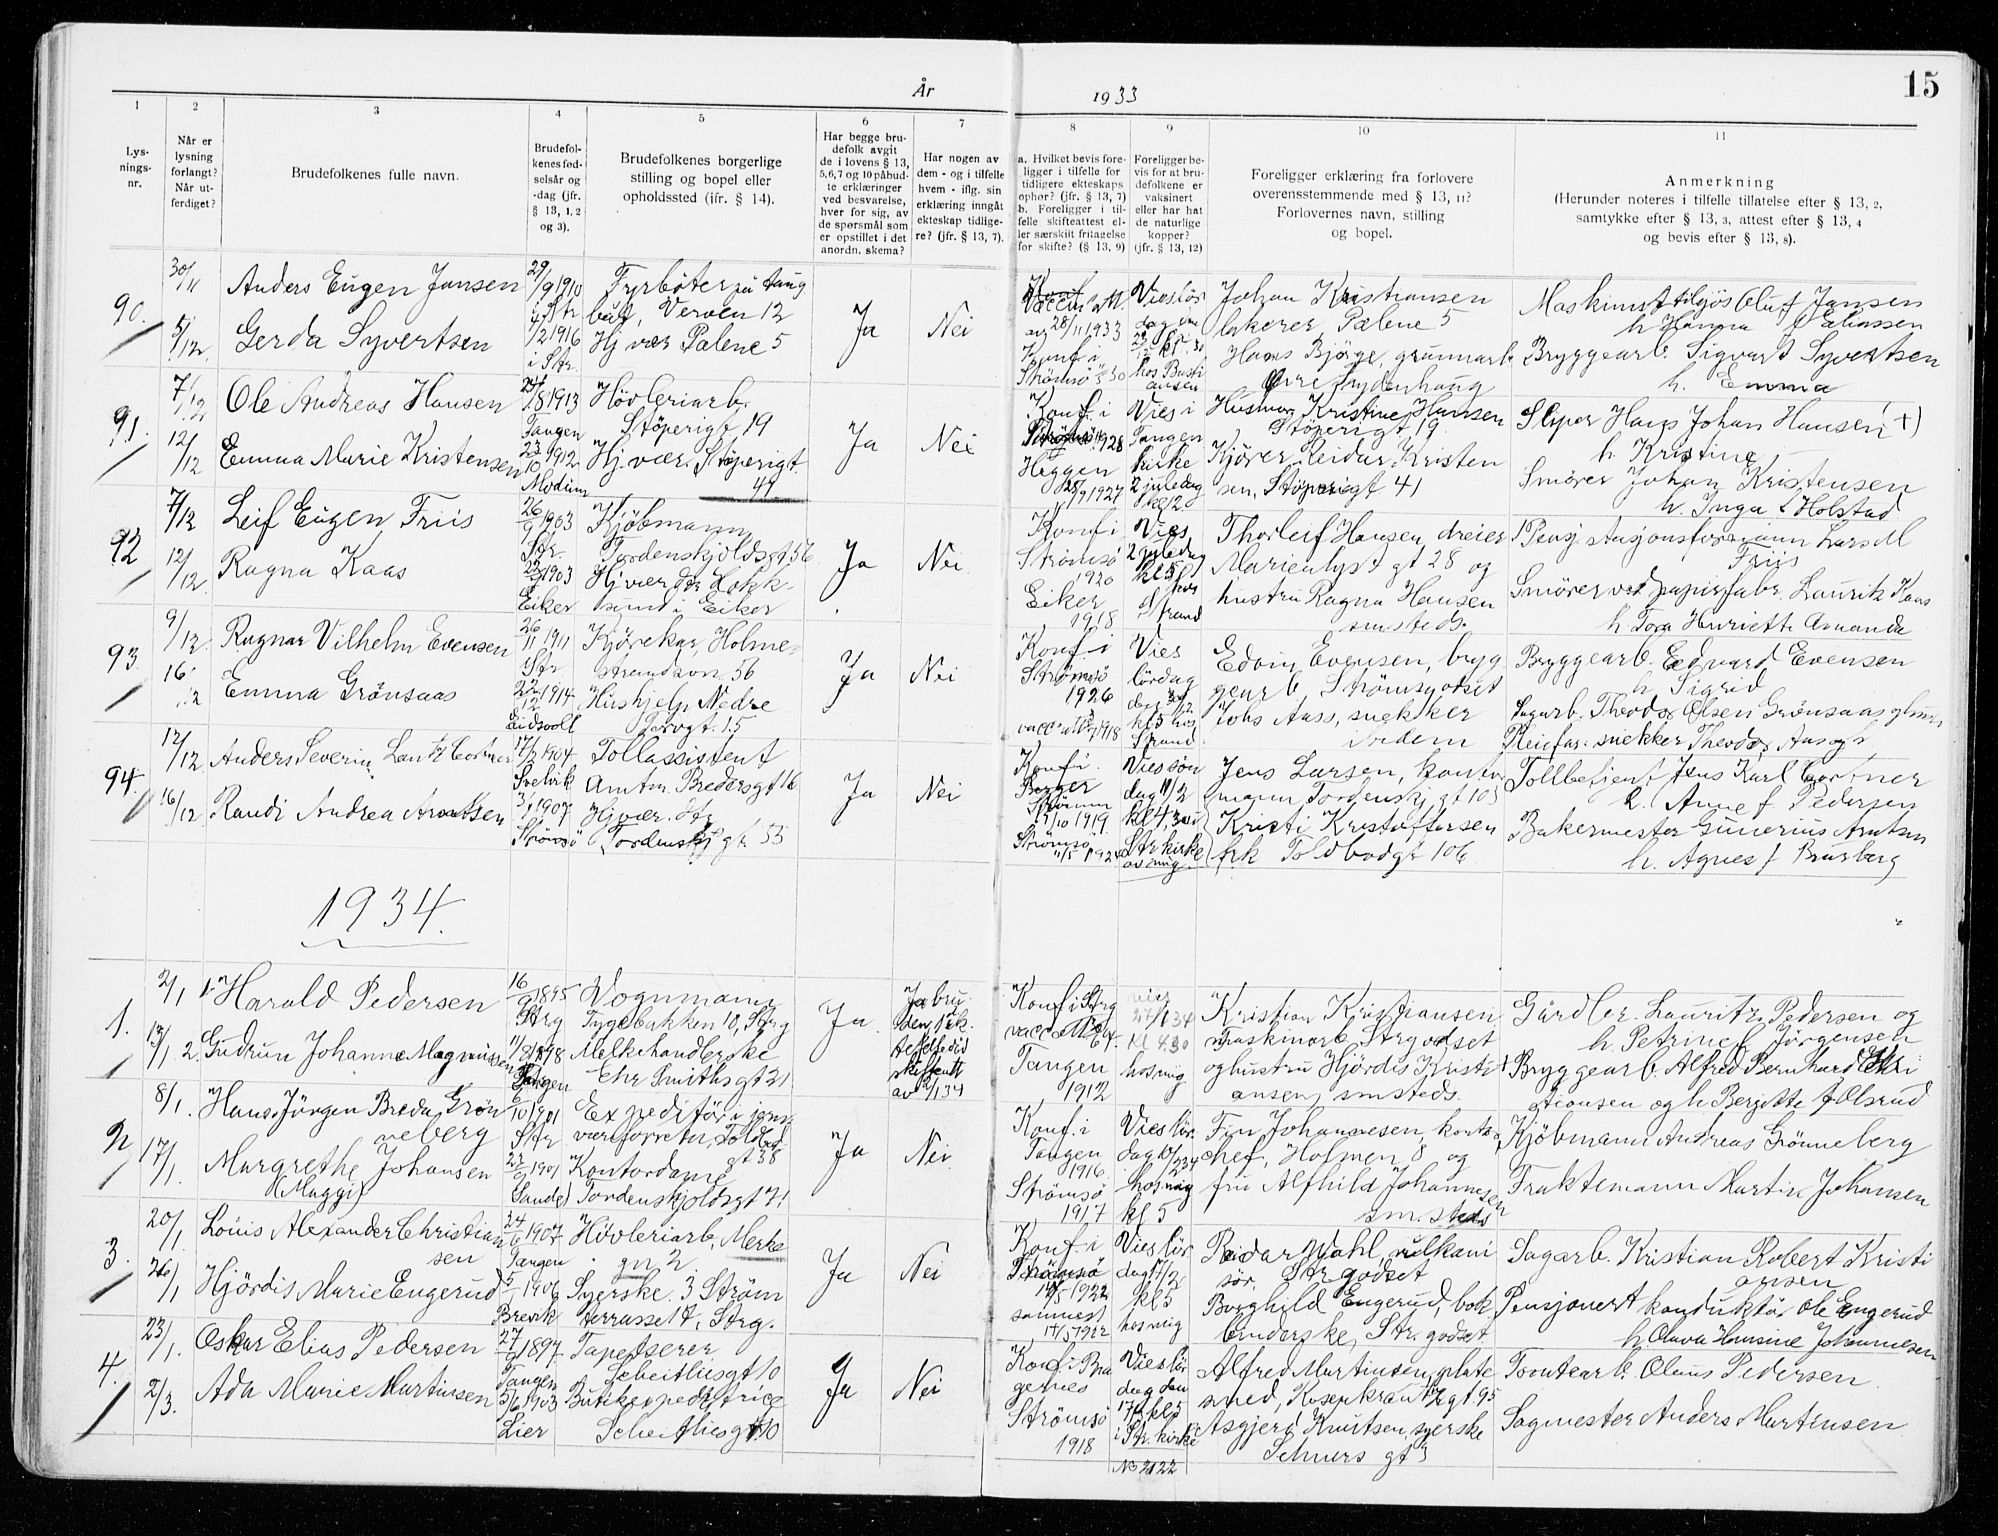 15
År 1933
1 2 3 4 5 6 7 8 9 10 11
Lys-
nings-
nr.
Når er
lysning
forlangt?
Når ut-
ferdiget?
Brudefolkenes fulle navn.
Brudefol-
kenes fød-
selsår og
-dag (jfr.
§ 13, 1, 2
og 3).
Brudefolkenes borgerlige
stilling og bopel eller
opholdssted (jfr. § 14).
Har begge bru-
defolk avgit
de i lovens § 13,
5, 6, 7 og 10 påbud-
te erklæringer
ved besvarelse,
hver for sig, av
de spørsmål som
er opstillet i det
anordn. skema?
Har nogen av
dem - og i tilfelle
hvem - iflg. sin
erklæring inngått
ekteskap tidlige-
re? (jfr. § 13, 7).
a. Hvilket bevis fore-
ligger i tilfelle for
tidligere ekteskaps
ophør? (jfr. § 13, 7)
b. Foreligger i til-
felle skifteattest el-
ler særskilt fritagelse
for skifte? (§ 13, 9)
Foreligger be-
vis for at bru-
defolkene er
vaksinert
eller har hat
de naturlige
kopper?
(jfr. § 13, 12)
Foreligger erklæring fra forlovere
overensstemmende med § 13, 11?
Forlovernes navn, stilling
og bopel.
Anmerkning
(Herunder noteres i tilfelle tillatelse efter § 13, 2,
samtykke efter § 13, 3, attest efter § 13, 4
og bevis efter § 13, 8).
90.
30/11
5/12
Anders Eugen Jansen
Gerda Syvertsen
29/9 1910
i Str
4/2 1916
i Str.
Fyrbøter på taug
båt, Verven 12
Hj vær Pælene 5
Ja
Nei
Vaccin. a M.
av 28/11 1933
Konf i
Strømsø 30
Vies lør
dag
hos Busti
ansen
Johan Kristiansen
lakerer, Pælene 5
Hans Bjørge, grunnarb.
Øvre Frydenhaug
Maskinist tilsjøs Oluf Jansen
h Hanna f Eliassen
Bryggearb. Sigvart Syvertsen
h. Emma
91.
7/12
12/12
Ole Andreas Hansen
Emma Marie Kristensen
24/8 1913
Tangen
23/10 1912
Modum
Høvleriarb.
Støperigt 19
Hj. vær. Støperigt.
41
Ja
Nei
Konf. i
1928
Heggen
1927
Vies i
Tangen
kirke
2 juledag
kl 20
Husmor Kristine Hansen
Støperigt 19
Kjører Reidar Kristen
sen, Støperigt 41
Sliper Hans Johan Hansen (+)
h. Kristine
Smører Johan Kristensen
h. Inga f Holstad
92
7/12
12/12
Leif Eugen Friis
Ragna Kaas
26/9 1903
Str.
1903
Eiker
Kjøbmann
Tordenskjoldsgt 56
Hj vær der Hokk-
sund i Eiker
Ja
Nei
Konf i
Strømsø
1920
Eiker
1918
Vies
2 juledag
kl 5
hos
Strand
Thorleif Hansen, dreier
Marienlyst gt 28 og
hustru Ragna Hansen
smsteds.
Pensj. stasjonsformann Lars M
Friis
Smører ved papirfabr. Lauritz Kaas
h. Tora Henriette Amanda
93.
9/12
16/12
Ragnar Vilhelm Evensen
Emma Grønsaas
26/11 1911
Str
22/12 1914
Eidsvoll
Kjørekar, Holme-
strandsvn 56
Hushjelp Nedre
Torvgt. 15
Ja
Nei
Konf. i
Strømsø
1926
1918
Vies
lørdag
kl 5 hos
Strand.
Edvin Evensen, bryg
gearb, Strømsgodset
Johs Aass, snekker
ibidem
Bryggearb. Edvard Evensen
h Sigrid
Sagarb. Theodor Olsen Grønsaas
Pleiefar: snekker Theodor Aas
94.
12/12
16/12
Anders Severin Lantz Cortner
Randi Andrea Arntsen
17/2 1904
Svelvik
3/1 1907
Strømsø
Tollassistent
Amtm. Bredersgt 16
Hj vær. Str
Tordenskj gt. 55
Ja
Nei
Konf i
Berger
Strømm
5/10 1919
Strømsø
11/5 1924
Vies søn
dag 11/2
kl 4 30 i
Str kirke
av mig.
Jens Larsen, kontor
mann, Tordenskj gt 105
Kristi Kristoffersen
frk Toldbodgt 106
Tollbetjent Jens Karl Cortner
h. Anne f. Pedersen
Bakermester Gunerius Arntsen
h. Agnes f Brusberg
1934.
1.
2/1
13/1
1. Harald Pedersen
2. Gudrun Johanne Magnussen
16/9 1895
Strg
11/8 1898
Tangen
Vognmann
Tygebakken 10, Strg
Melkehandlerske
Chr Smithsgt 31
Ja
Ja bru
den, Fik.
skifteatt
av 2/1 34
Konf i Strg
Tangen
1912
vies
27/1 34
kl 4 30
hos mig
Kristian Kristiansen
maskinarb Strgodset
og hustru Hjørdis Kristi
ansen, smsteds.
Gårdbr. Lauritz Pedersen og
h. Petrine f Jørgensen
Bryggearb. Alfred Bernhard Kri
stiansen og h Bergitte f Olsrud
2
8/1.
17/1.
Hans Jørgen Breda Grøn
neberg
Margrethe Johansen
(Maggi)
6/10 1901
Str
22/9 1901
Sande
Expeditør i jern
vareforretn, Toldbod
gt 38
Kontordame
Tordenskjoldsgt 71
Ja
Nei
Konf. i
Tangen
1916
Strømsø
1917
Vies lør
dag 10/2 34
hos mig
kl 5
Finn Johannesen, kontor
chef, Holmen 8 og
fru Alfhild Johannesen
sm. steds
Kjøbmann Andreas Grønneberg
Fraktemann Martin Johansen
3.
20/1.
26/1
Louis Alexander Christian
sen
Hjørdis Marie Engerud
24/6 1907
Tangen
5/1 1906
Brevik
Høvleriarb, Merke
gn 2
Syerske. 3 Strøm
terrasse 17, Strg.
Ja
Nei
Konf i
Strømsø
1922
sammest
17/5 1922
Vies lør
dag 17/2
kl 5
hos mig
Reidar Wahl, vulkani
sør, Str godset
Borghild Engerud, bok
binderske, Str. godset
Sagarb. Kristian Robert Kristi
ansen
Pensjonert konduktør Ole Engerud
h. Olava Hansine Johannesen
4.
23/1.
2/3.
Oskar Elias Pedersen
Ada Marie Martinsen
1897
Tangen
5/6 1903
Lier
Tapetserer
Scheitliesgt 10
Butikexpeditrice
Scheitliesgt 10
Ja
Nei
Konf i Bra
gernes
Strømsø
1918
Vies lør
dag den
17/3 kl 5
i Str. kirke
No 2122
Alfred Martinsen, plate
smed, Rosenkrantz gt 95
Asgjerd Knutsen, syerske
Schwers gt 3
Tomtearb. Olaus Pedersen
Sagmester Anders Martinsen